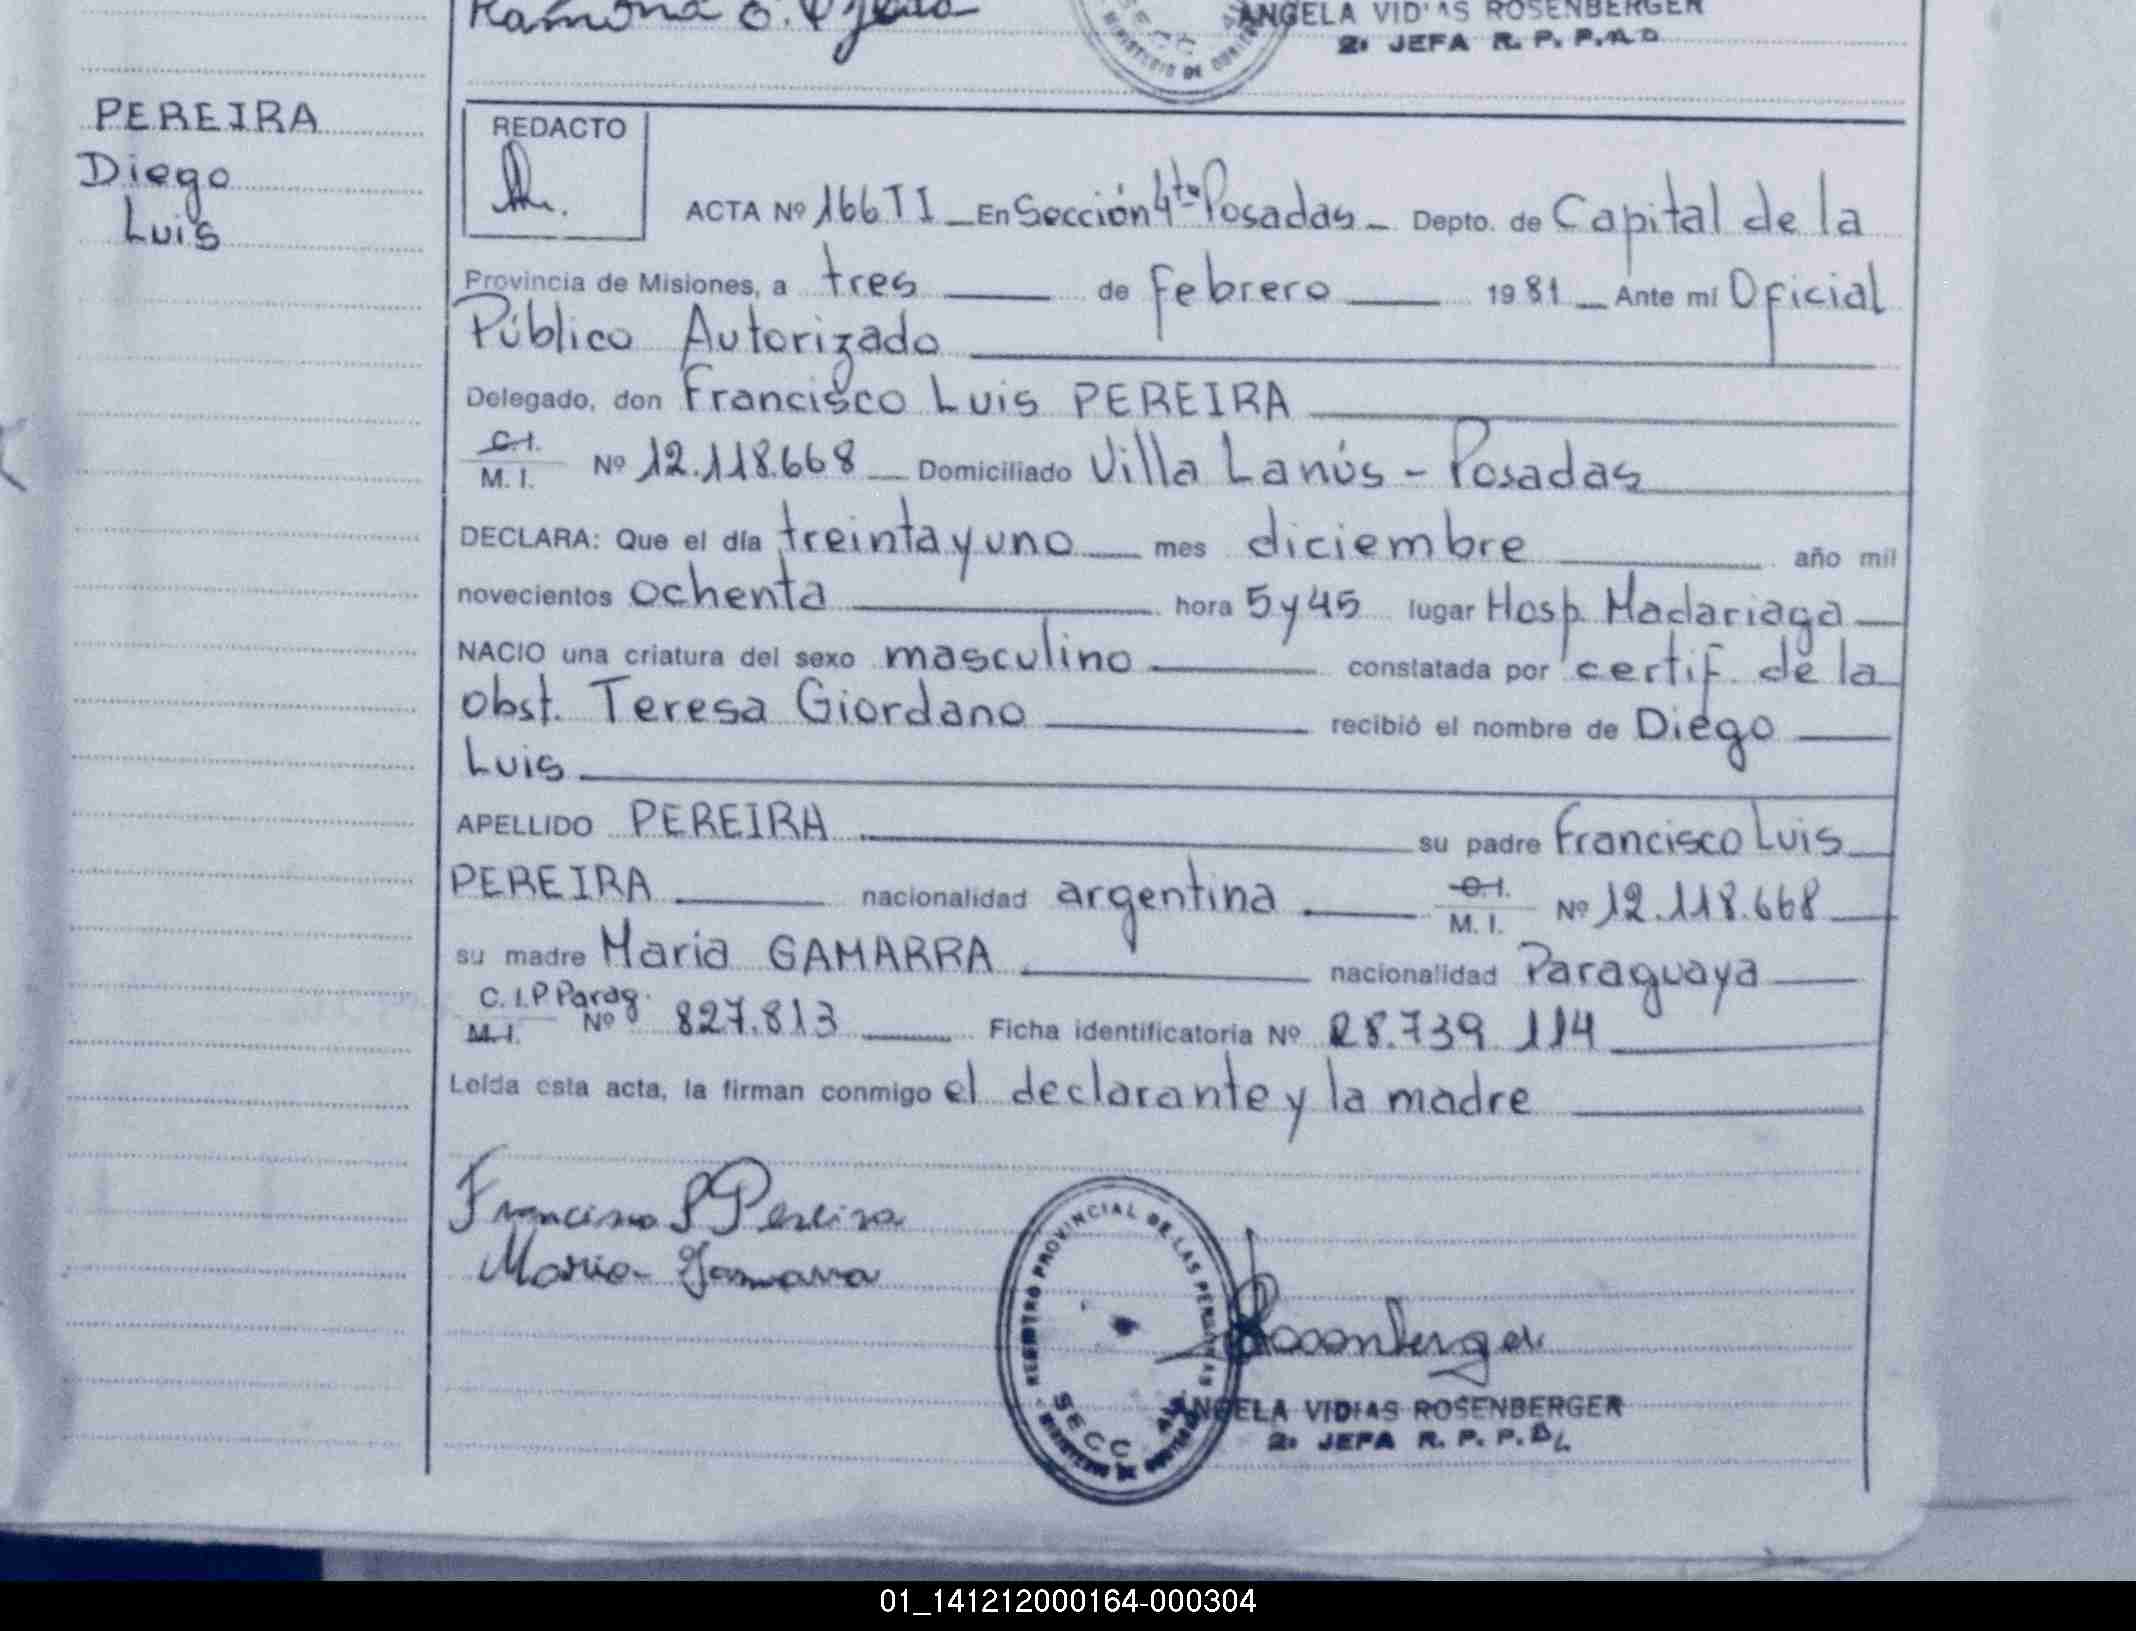 Ramona
ANGELA VIDIAS ROSENBERGER
2a JEFA R. P. P.
SECC
MINISTERIO DE
PEREIRA
Diego
Luis
REDACTO
ACTA Nº 166 T I _ En Sección 4ta Posadas _ Depto. de Capital de la
Provincia de Misiones, a tres de Febrero 1981 _ Ante mí Oficial
Público Autorizado
Delegado, don Francisco Luis PEREIRA
C.I.
M. I. Nº 12.118.668 _ Domiciliado Villa Lanús - Posadas
DECLARA: Que el día treinta y uno mes diciembre año mil
novecientos ochenta hora 5 y 45 lugar Hosp. Madariaga
NACIO una criatura del sexo masculino constatada por certif. de la
obst. Teresa Giordano recibió el nombre de Diego
Luis
APELLIDO PEREIRA su padre Francisco Luis
PEREIRA nacionalidad argentina C.I.
M. I. Nº 12.118.668
su madre Maria GAMARRA nacionalidad Paraguaya
C. I. P Parag.
M. I. Nº 827.813 Ficha identificatoria Nº 28.739 114
Leída esta acta, la firman conmigo el declarante y la madre
Francisco L Pereira
Maria Gamarra
REGISTRO PROVINCIAL DE LAS PERSONAS
SECC
MINISTERIO DE GOBIERNO
Rosenberger
ANGELA VIDIAS ROSENBERGER
2a JEFA R. P. P.
01_141212000164-000304